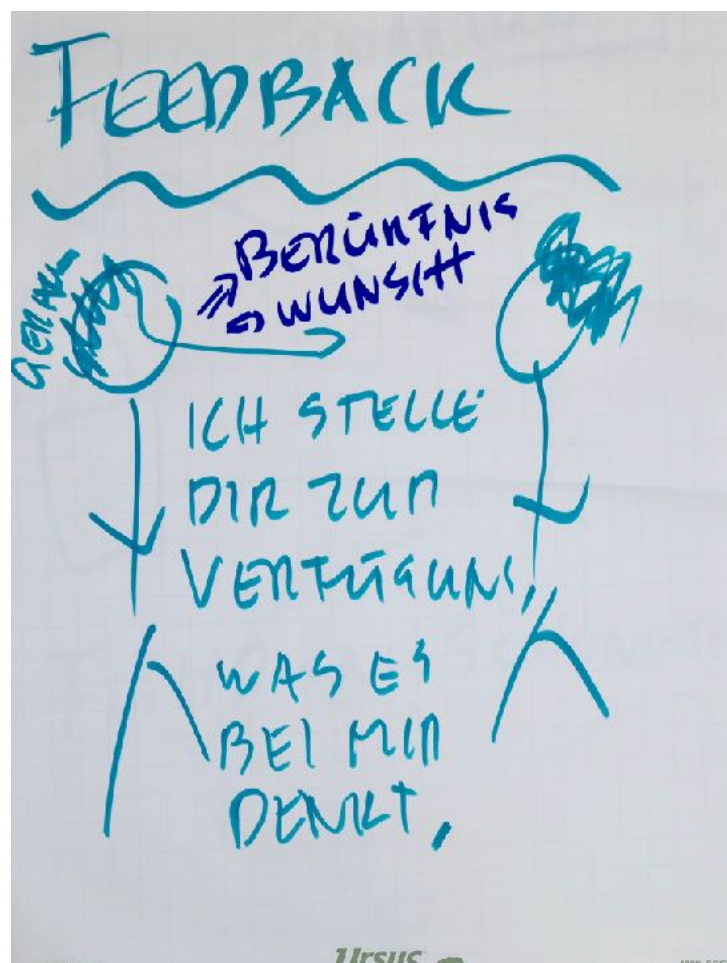 FEEDBACK
BERÜHRTNIS
WUNSCH
ICH STELLE
DIR ZUR
VERFÜGUNG,
WAS ES
BEI MIR
DENKT,
Ursus